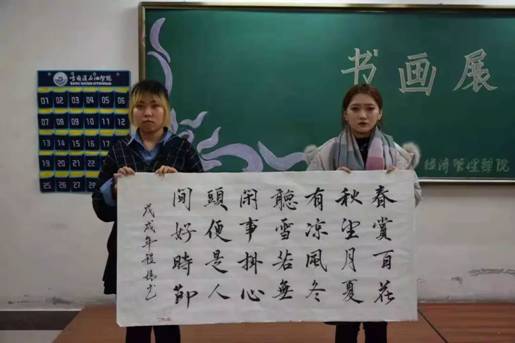 书画展
经济管理学院
01 02 03 04 05 06
07 08 09 10 11 12
13 14 15 16 17 18
19 20 21 22 23 24
25
春賞百花
秋望月夏
有凉風冬
聽雪若無
闲事掛心
頭便是人
间好時節
戊戌年程书